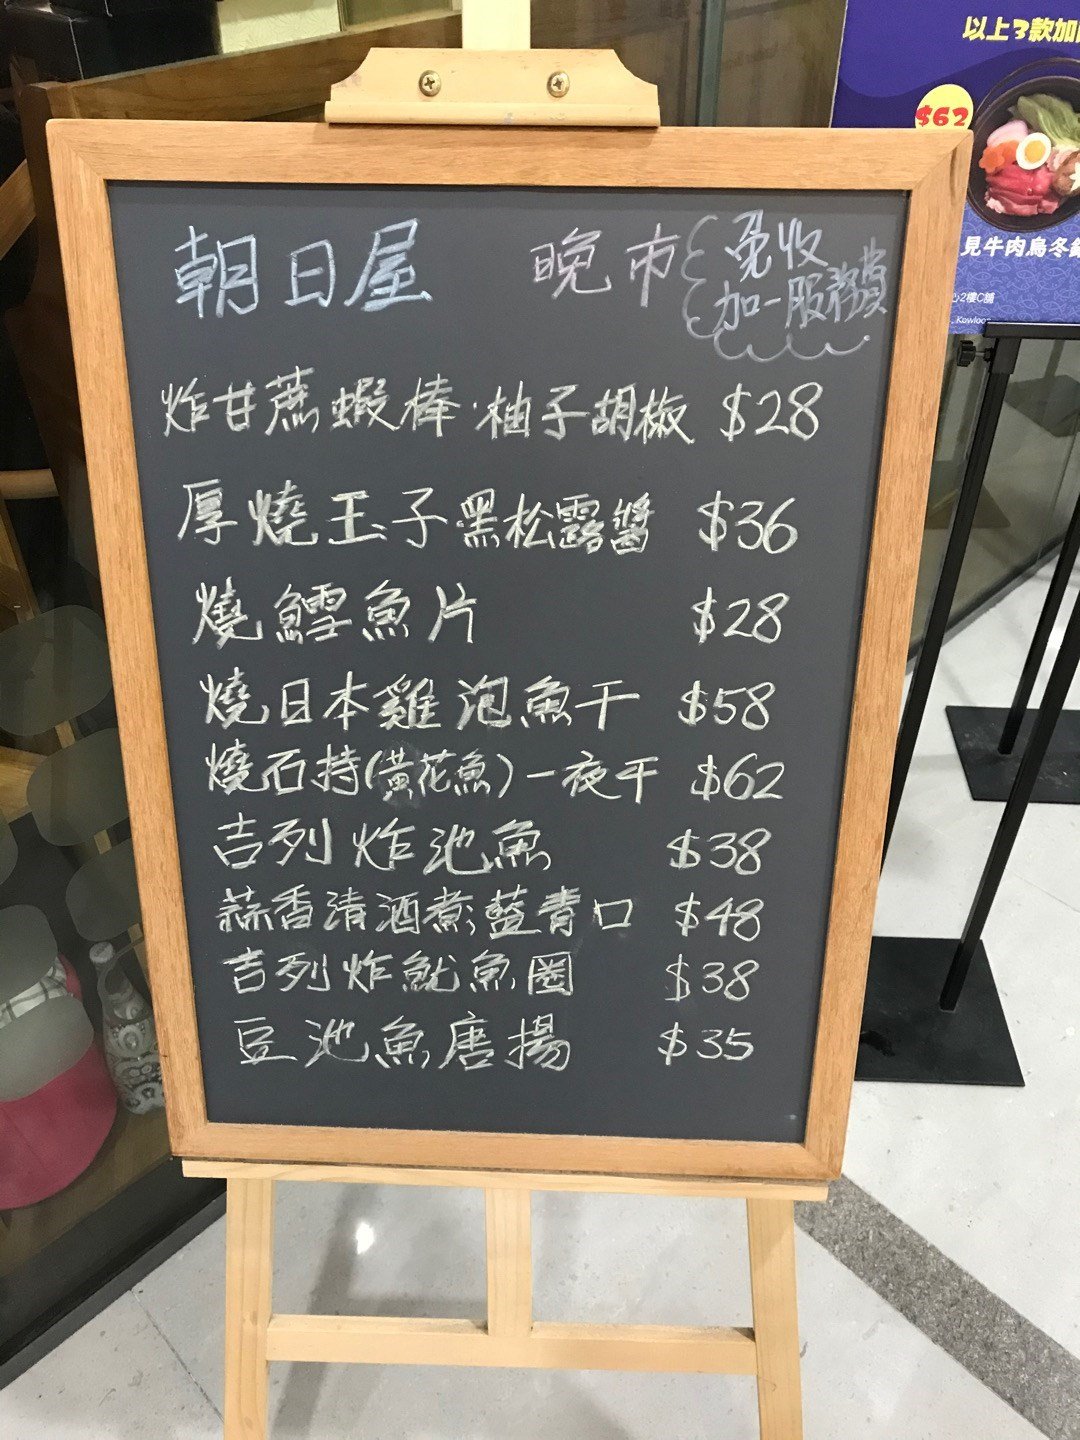 朝日屋 晚市 免收
加一服務費
炸甘蔗蝦棒·柚子胡椒 $28
厚燒玉子黑松露醬 $36
燒鱈魚片 $28
燒日本雞泡魚干 $58
燒石持(黃花魚)一夜干 $62
吉列炸池魚 $38
蒜香清酒煮藍青口 $48
吉列炸魷魚圈 $38
豆池魚唐揚 $35
以上3款加
$62
見牛肉烏冬
心2樓C舖
Kowloon